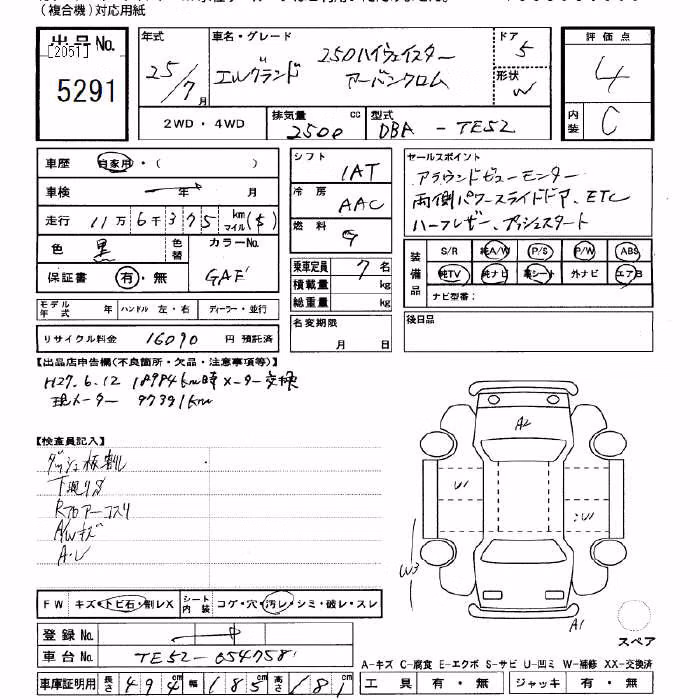 (複合機)対応用紙
出品No.
[2051]
5291
年式
25/7月
車名・グレード
エルグランド
250ハイウェイスター
アーバンクロム
ドア
5
形状
W
評価点
4
内装
C
2WD・4WD
排気量
2500
cc
型式
DBA - TE52
車歴
自家用・( )
車検
年 月
走行
11万6千375
km
マイル
($)
色
黒
色替
カラーNo.
GAE
保証書
有・無
シフト
1AT
冷房
AAC
燃料
G
乗車定員
7名
積載量
kg
総重量
kg
セールスポイント
アラウンドビューモニター
両側パワースライドドア、ETC
ハーフレザー、プッシュスタート
装備品
S/R
純A/W
P/S
P/W
ABS
純TV
純ナビ
革シート
外ナビ
エアB
ナビ型番:
モデル年式
年
ハンドル 左・右
ディーラー・並行
リサイクル料金
16090
円 預託済
名変期限
月 日
後日品
【出品店申告欄(不良箇所・欠品・注意事項等)】
H27.6.12 18984km時メーター交換
現メーター 97391km
【検査員記入】
ダッシュ板割れ
下廻りS
Rフロアーコスリ
A/Wキズ
A・U
A2
U1
U1
W3
A1
スペア
FW
キズ・トビ石・割レX
シート内装
コゲ・穴・汚レ・シミ・破レ・スレ
登録No.
車台No.
TE52-054758
車庫証明用
長さ
494
cm
幅
185
cm
高さ
181
cm
A-キズ C-腐食 E-エクボ S-サビ U-凹ミ W-補修 XX-交換済
工具
有・無
ジャッキ
有・無